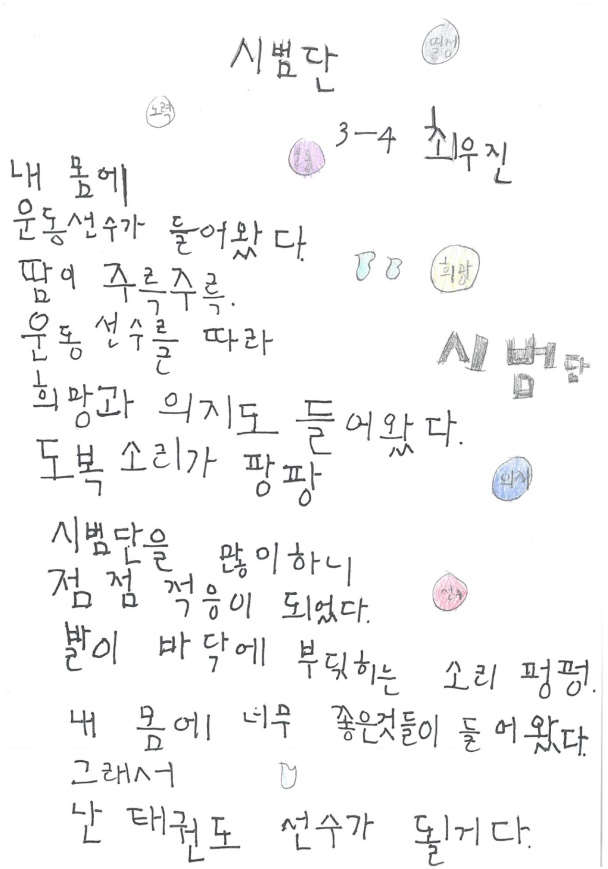 시범단
떨림
노력
3-4 최우진
내 몸에
운동선수가 들어왔다.
땀이 주륵주륵.
희망
운동선수를 따라
시범단
희망과 의지도 들어왔다.
도복 소리가 팡팡
의지
시범단을 많이하니
점점 적응이 되었다.
선수
발이 바닥에 부딪히는 소리 펑펑.
내 몸에 너무 좋은것들이 들어왔다.
그래서
난 태권도 선수가 될거다.